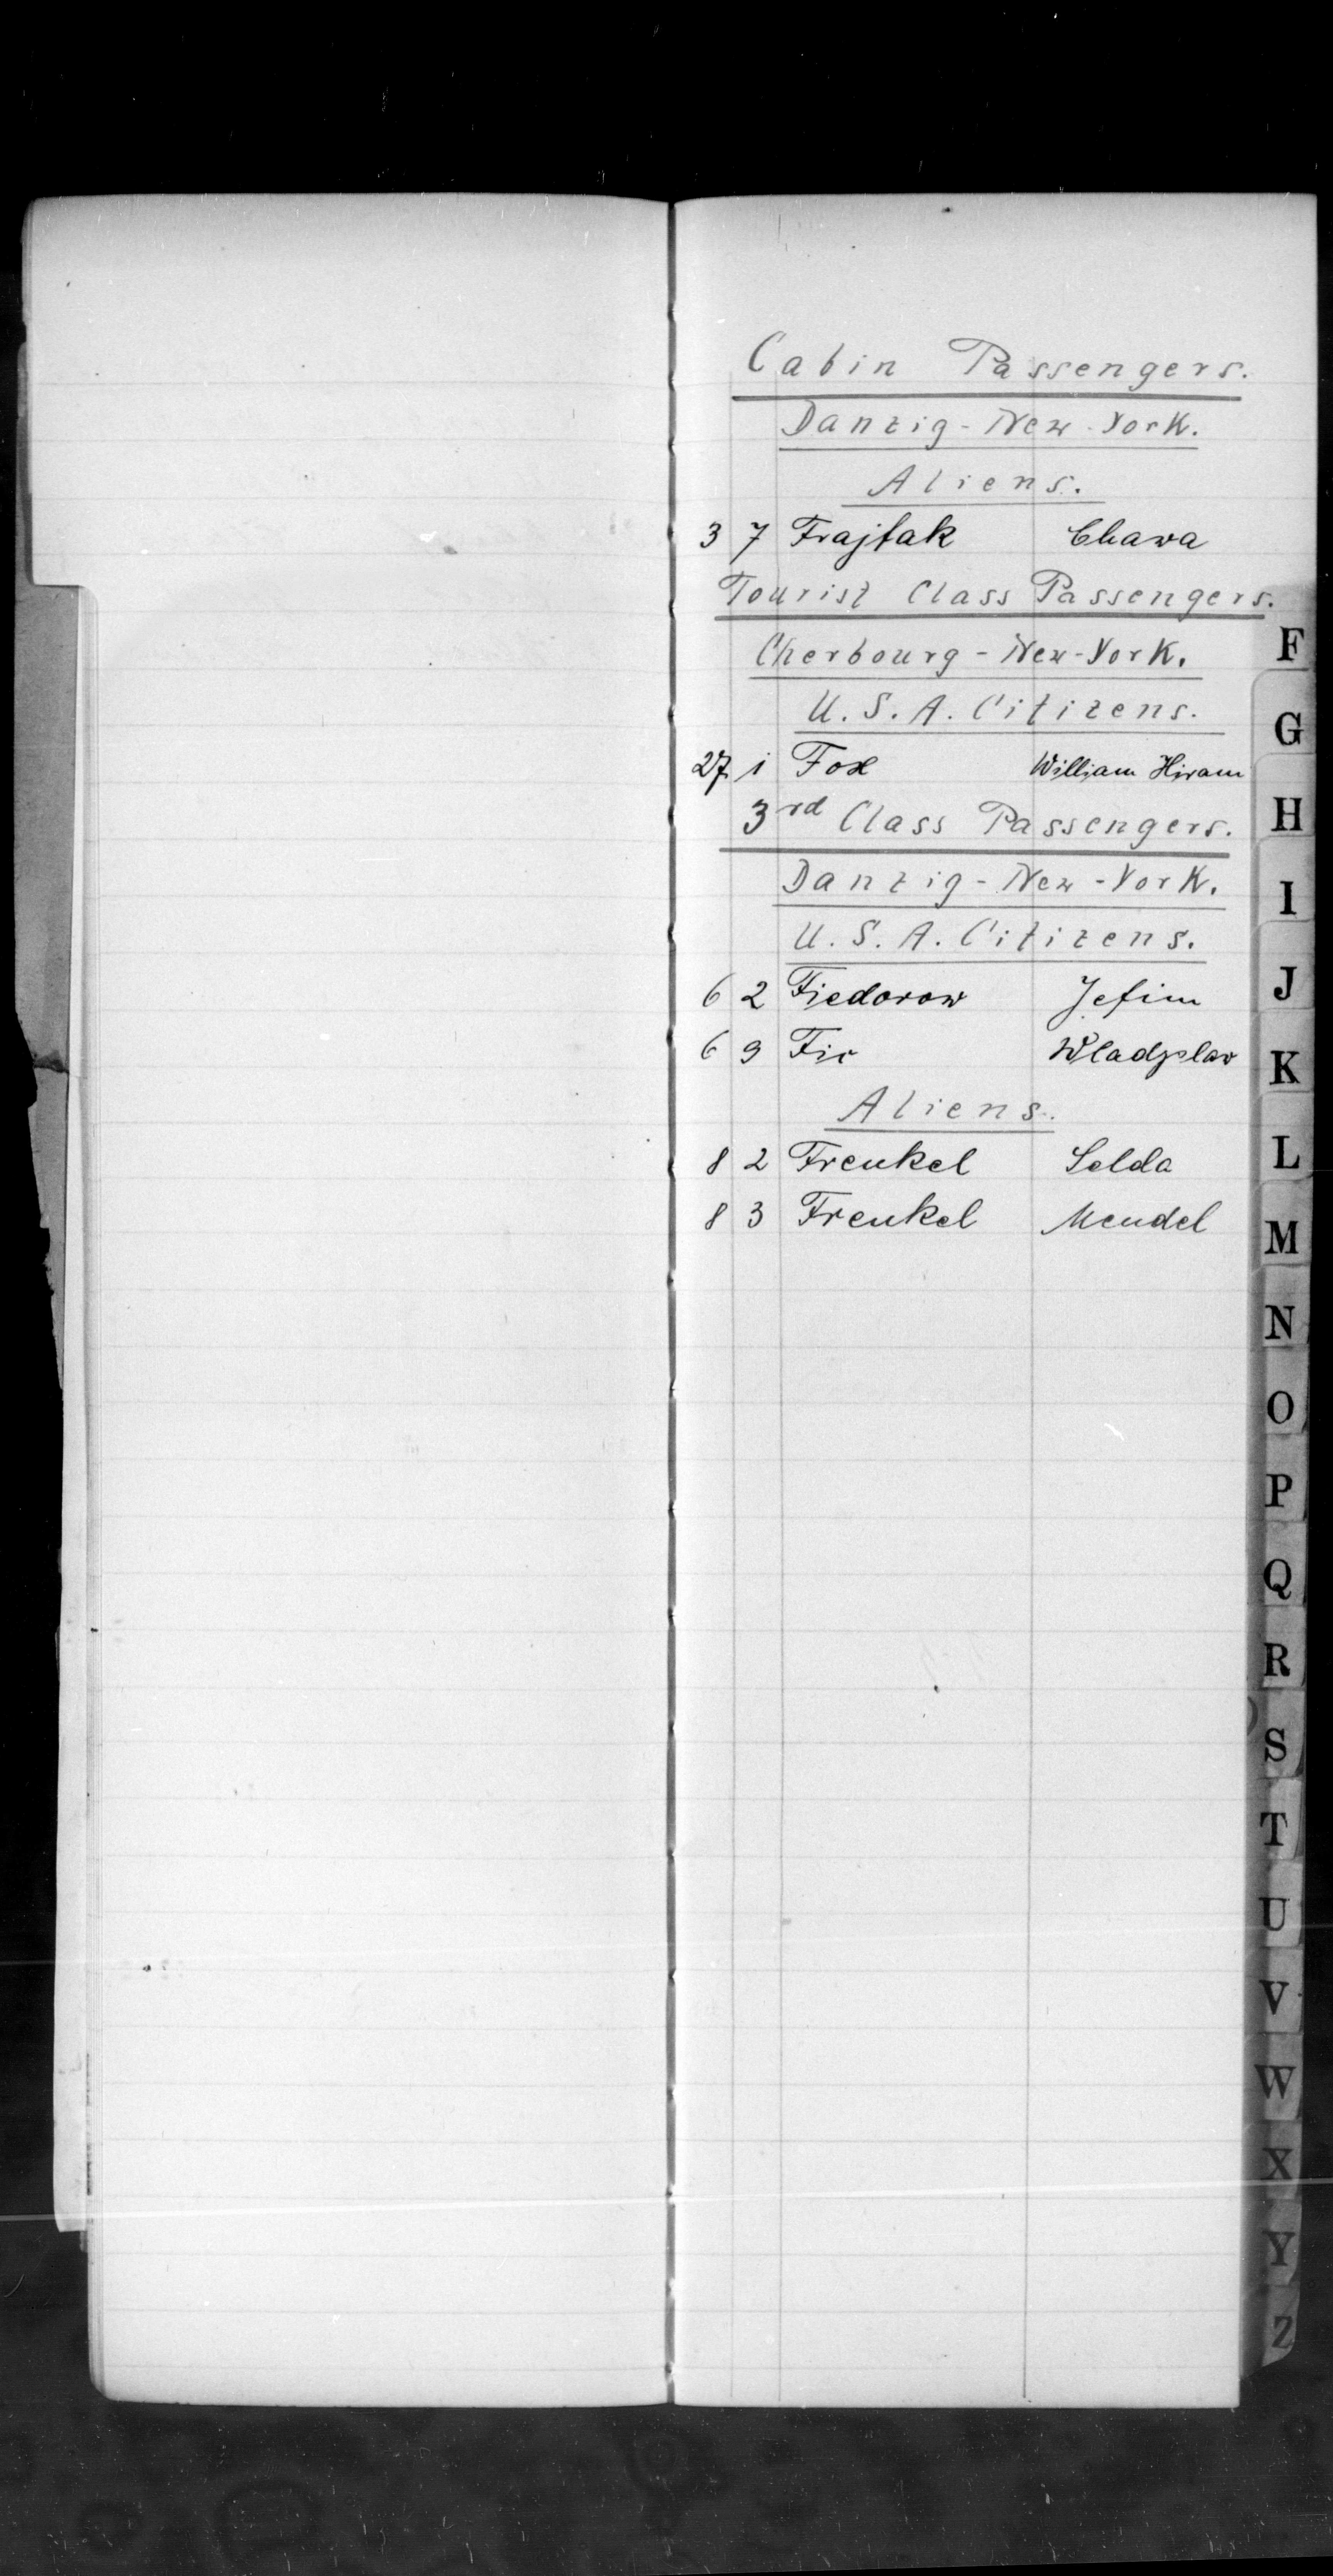 Cabin Passengers.
Danzig-New-York.
Aliens.
3 7 Frajtak Chawa
Tourist Class Passengers.
Cherbourg-New-York.
U.S.A. Citizens.
27 1 Fox William Hiram
3rd Class Passengers.
Danzig-New-York.
U.S.A. Citizens.
6 2 Fiedorow Jefim
6 9 Fic Wladyslaw
Aliens.
8 2 Frenkel Selda
8 3 Frenkel Mendel
F
G
H
I
J
K
L
M
N
O
P
Q
R
S
T
U
V
W
X
Y
Z